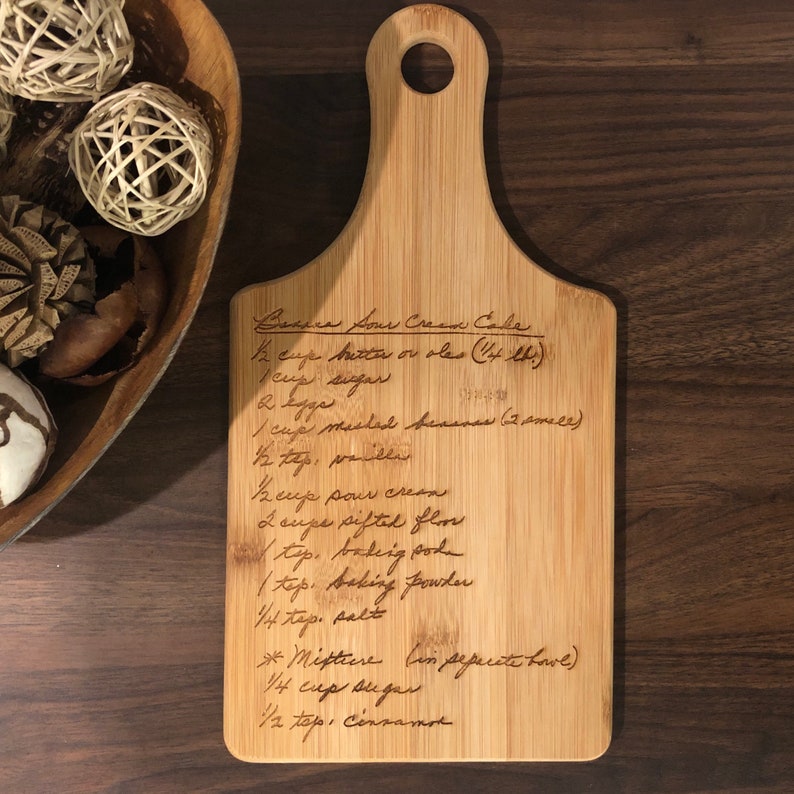 Banana Sour Cream Cake
1/2 cup butter or oleo (1/4 lb.)
1 cup sugar
2 eggs
1 cup mashed bananas (2 small)
1/2 tsp. vanilla
1/2 cup sour cream
2 cups sifted floor
1 tsp. baking soda
1 tsp. baking powder
1/4 tsp. salt
* Mixture (in separate bowl)
1/4 cup sugar
1/2 tsp. cinnamon